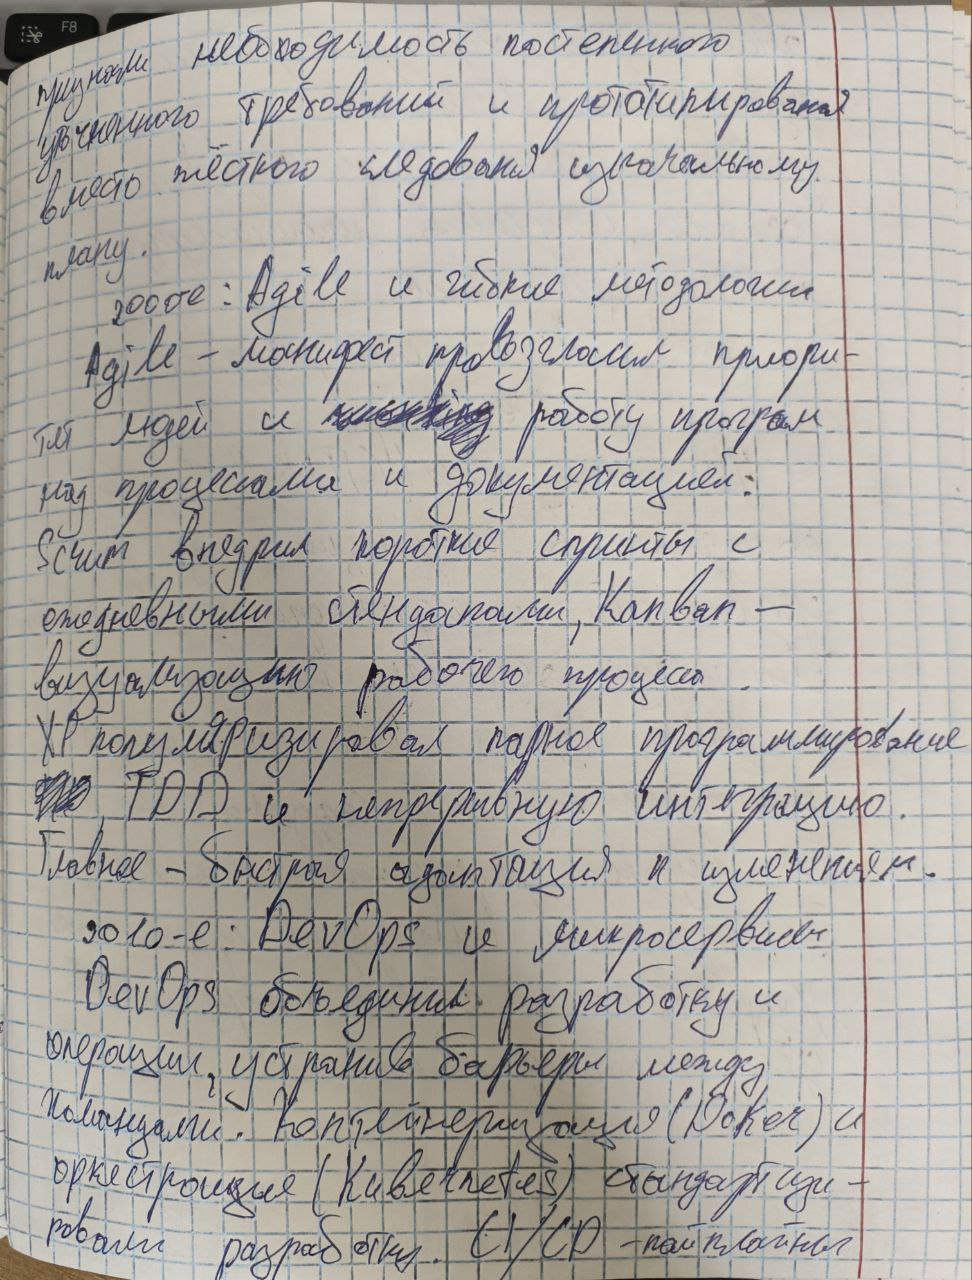 F8
признали необходимость постепенного
уточнённого требований и прототипирования
вместо жёсткого следования изначальному
плану.
2000те: Agile и гибкие методологии
Agile – манифест провозгласил приори-
тет людей и работу програм
над процессами и документацией.
Scrum внедрил короткие спринты с
ежедневными стендапами, Канван –
визуализацию рабочего процесса
XP популяризировал парное программирование
, TDD и непрерывную интеграцию.
Главное – быстрая адаптация к изменениям.
2010-е: DevOps и микросервисы
DevOps объединил разработку и
операции, устранив барьеры между
командами. Контейнеризация (Doker) и
оркестрация (Kubernetes) стандартизи-
ровали разработку. CI/CD – пайплайны